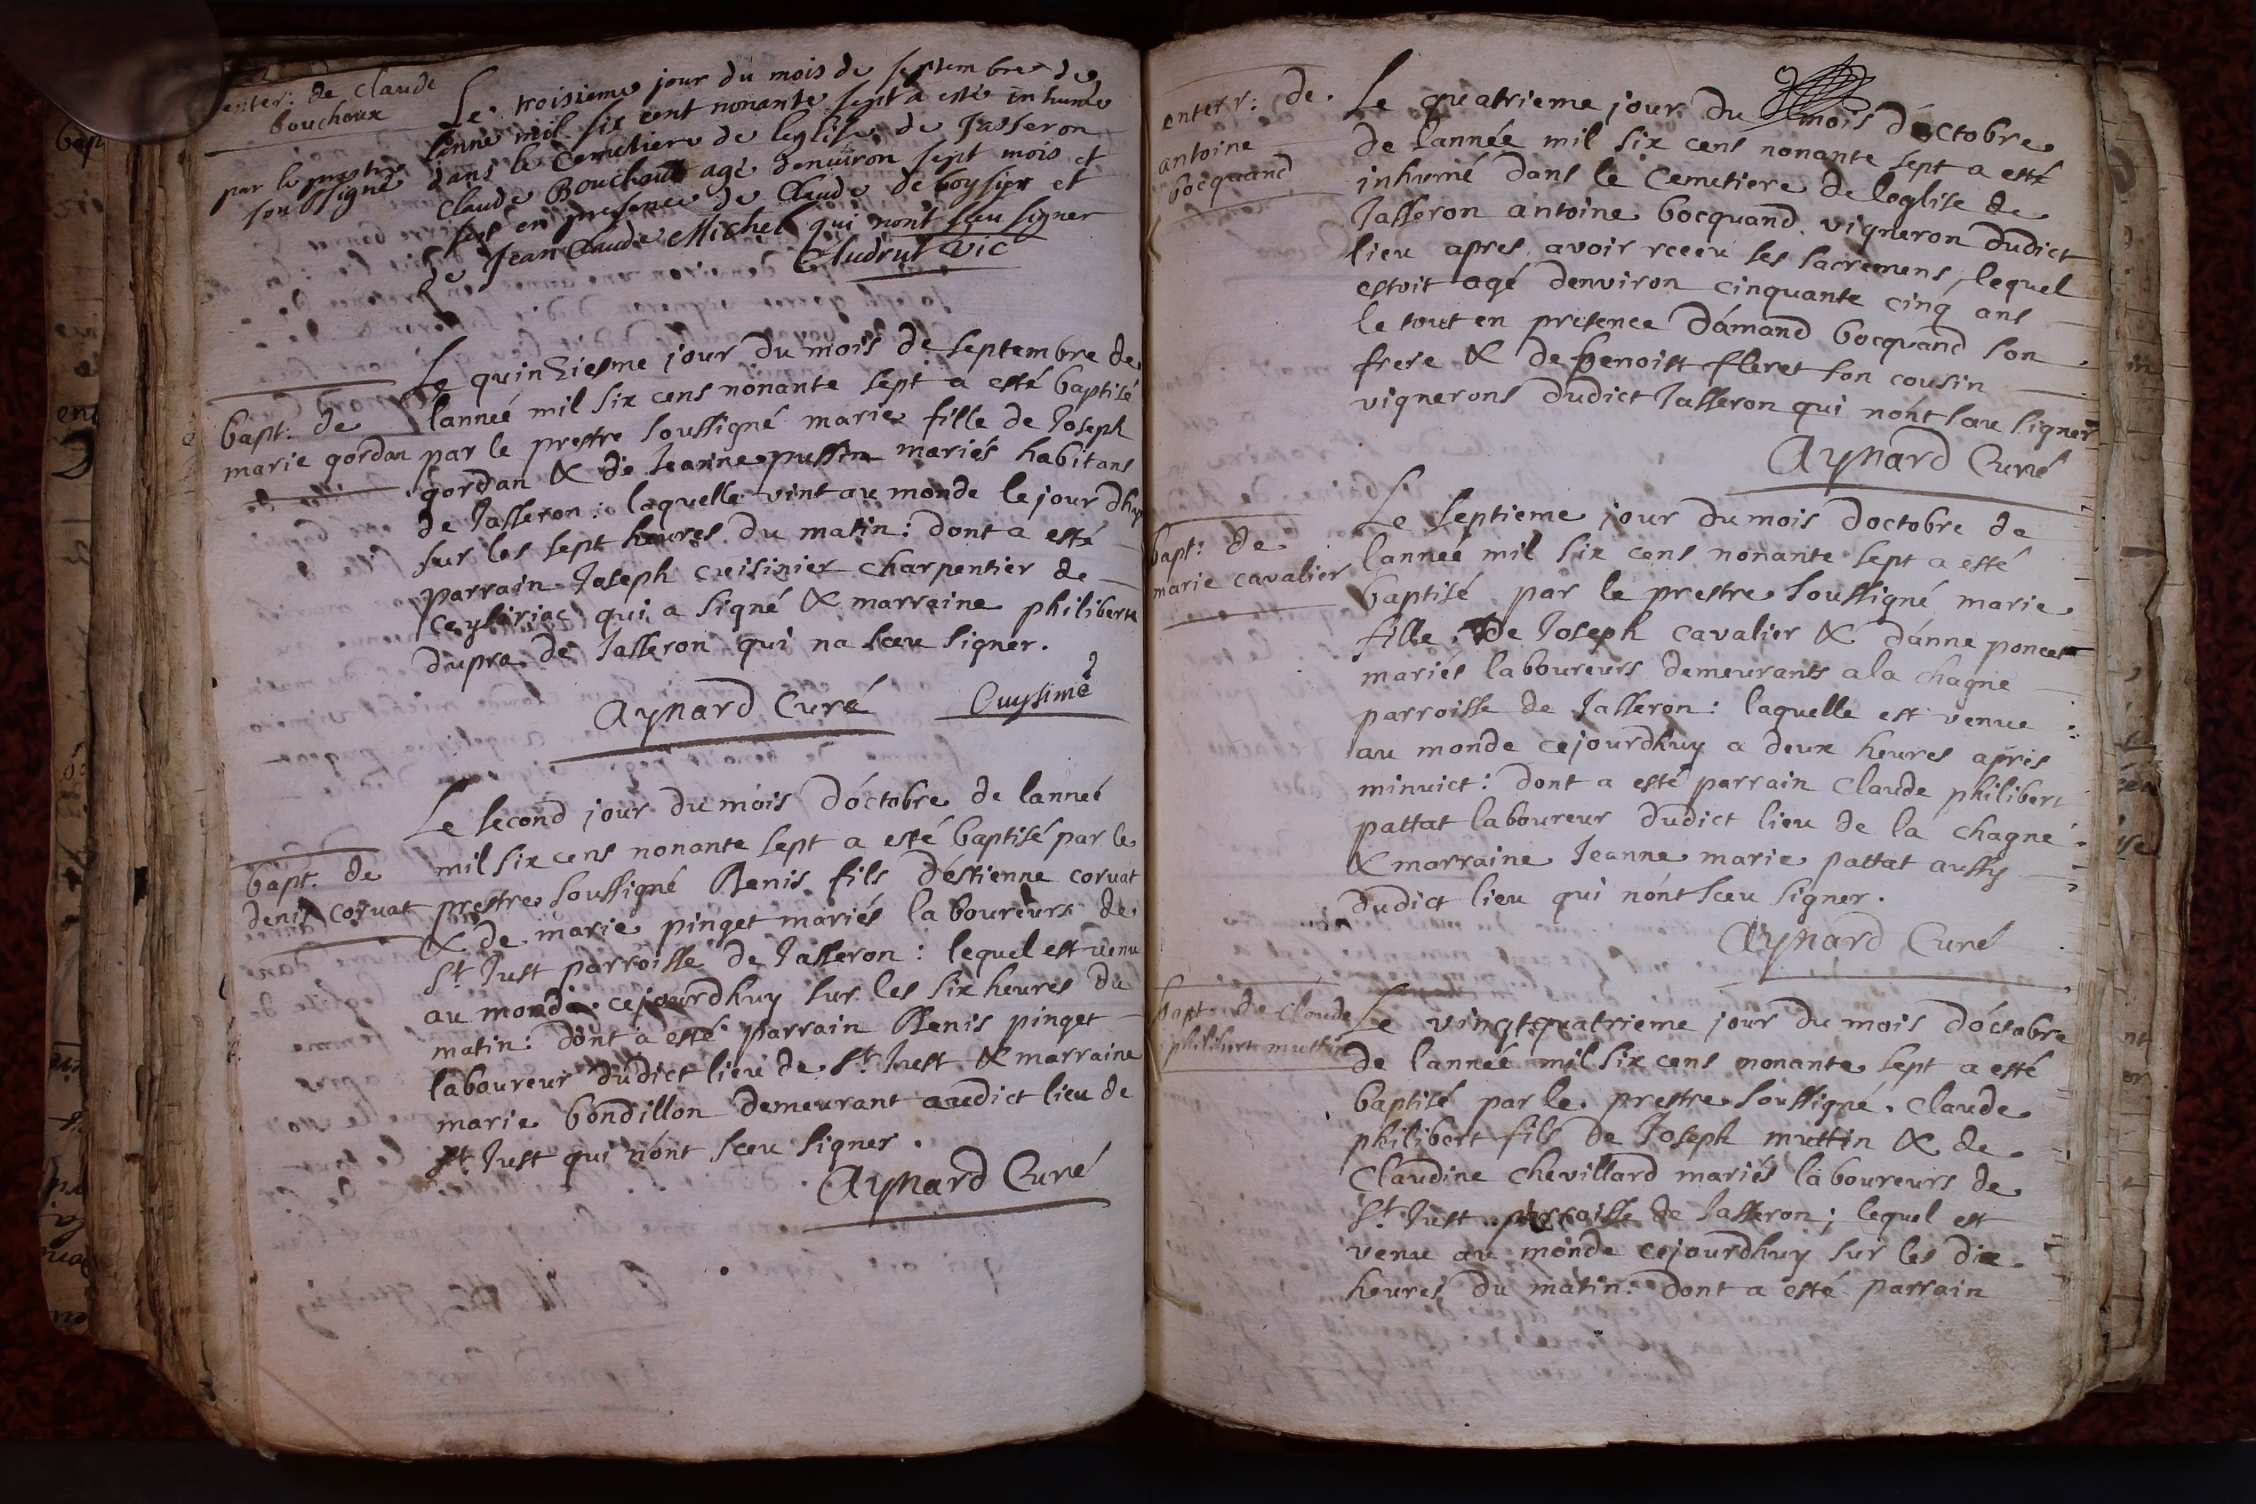 enter: de claude
bouchoux
Le troisieme jour du mois de septembre de
lanne mil six cent nonante sept a esté inhumé
par le prestre
soubsigné
dans le Cemetiere de leglise de Jasseron
claude Bouchoux agé denuiron sept mois et
le tout en presence de Claude de boysier et
de Jean Claude Michel qui nont sceu signer
vic
Le quinziesme jour du mois de septembre de
bapt: de
marie gordan
lanneé mil six cens nonante sept a esté baptisé
par le prestre soussigné marie fille de Joseph
gordan & de Jeanne pussin mariés habitans
de Jasseron: laquelle vint au monde le jour dhuy
sur les sept heures du matin: dont a esté
parrain Joseph cuisinier charpentier de
ceyseriac qui a signé & marraine philiberte
dupra de Jasseron qui na sceu signer.
Aynard Curé
Cuysinié
Le second jour du mois d'octobre de lanneé
bapt. de
denis corvat
mil six cens nonante sept a esté baptisé par le
prestre soussigné Denis fils d'éstienne corvat
& de marie pinget mariés laboureurs de
St Just parroisse de Jasseron: lequel est venu
au monde cejourdhuy sur les six heures du
matin: dont a esté parrain Denis pinget
laboureur dudict lieu de St Just & marraine
marie bondillon demeurant audict lieu de
St Just qui n'ont sceu signer.
Aynard Curé
enterr: de
antoine
bocquand
Le quatrieme jour du mois d'octobre
de lannée mil six cens nonante sept a esté
inhumé dans le Cemetiere de leglise de
Jasseron antoine bocquand vigneron dudict
lieu apres avoir receu ses sacremens, lequel
estoit agé denviron cinquante cinq ans
le tout en presence d'amand bocquand son
frere & de benoist fleret son cousin
vignerons dudict Jasseron qui n'ont sceu signer
Aynard Curé
bapt: de
marie cavalier
Le septieme jour du mois doctobre de
lanneé mil six cens nonante sept a esté
baptisé par le prestre soussigné marie
fille de Joseph cavalier & d'anne poncet
mariés laboureurs demeurants a la chagne
parroisse de Jasseron: laquelle est venue
au monde cejourdhuy a deux heures apres
minuict: dont a esté parrain Claude philibert
pattat laboureur dudict lieu de la chagne
& marraine Jeanne marie pattat aussy
dudict lieu qui n'ont sceu signer.
Aynard Curé
bapt de claude
philibert muttin
Le vingtquatrieme jour du mois d'octobre
de lanneé mil six cens nonante sept a esté
baptisé par le prestre soussigné. claude
philibert fils de Joseph muttin & de
Claudine chevillard mariés laboureurs de
St Just parroisse de Jasseron; lequel est
venu au monde cejourdhuy sur les dix
heures du matin: dont a esté parrain